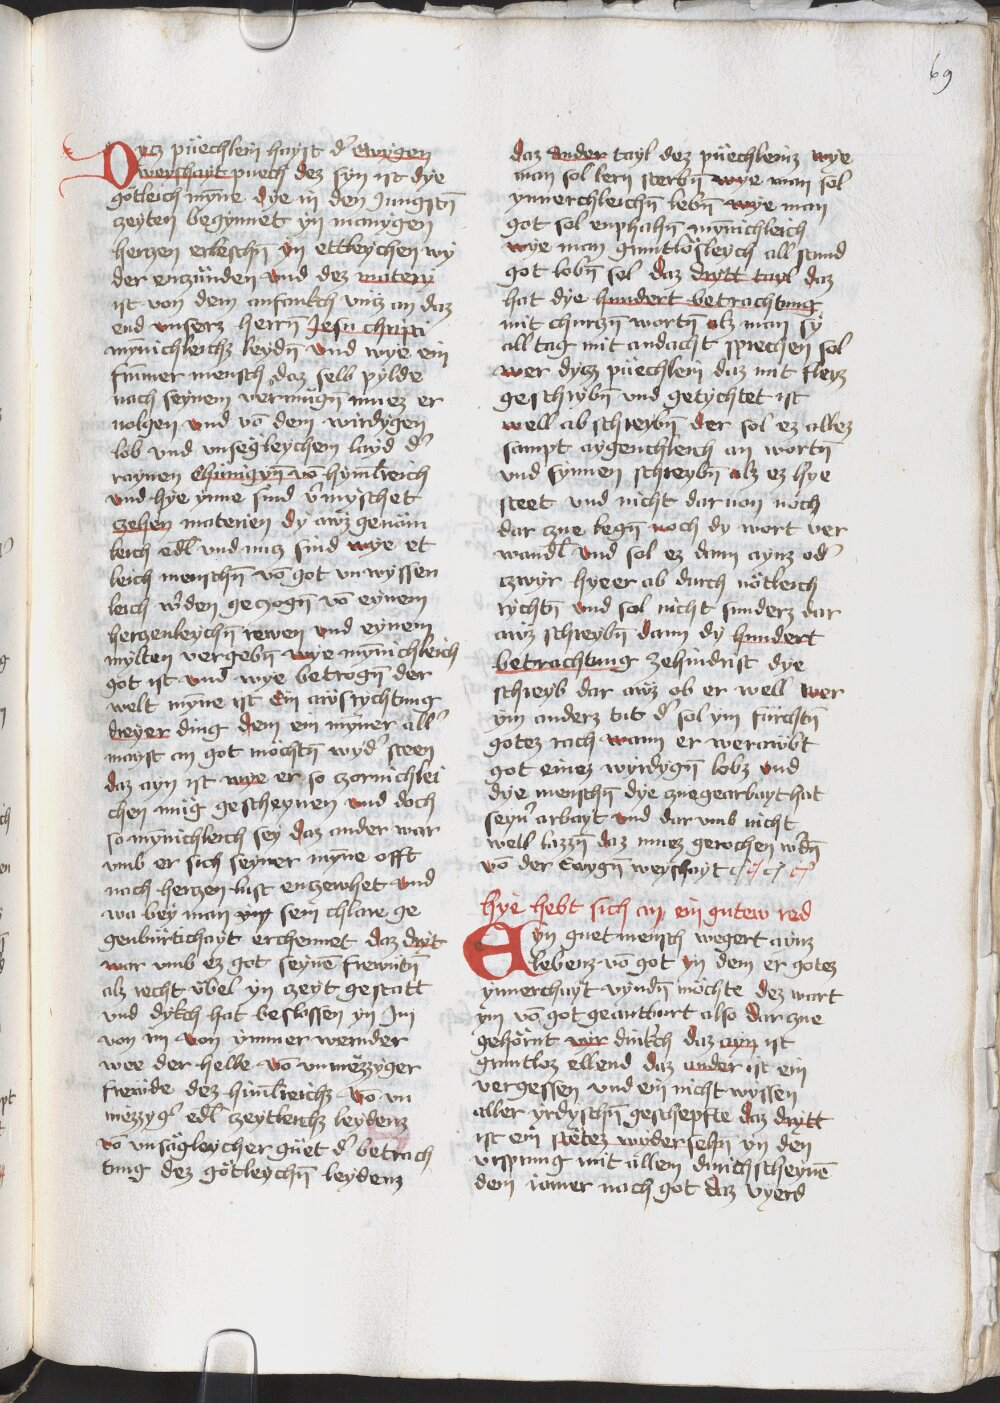 69
Dycz püechlein hayst d' ewygen
weyshayt puech dez syn ist dye
götleich mynne dye in den Jungstn̄
zeyten begynnet yn manygen
herzen erleschn̄ yn ettleychen wy
der enczünden und dez matery
ist von dem anfankch uncz an daz
end unserz herrn̄ Jesu christi
mynnichleichz leydn̄ und wye ein
frumer mensch daz selb pylde
nach seynem vermügn̄ muez er
uolgen und vō dem wirdygen
lob und unsegleychem layd d'
raynen chünigyn̄ vō hymlreich
und hye ynne sind v'myschet
zehen materien dy awz genäm
leich edl' und nucz sind wye et
leich menschn̄ vō got unwyssen
leich w'den geczogn̄ vō eynem
herzenleychn̄ rewen und eynem
mylten vergebn̄ wye mynnichleich
got ist und wye betrogn̄ der
welt mynne ist Ein awsrychtung
dreyer ding dem ein mynner all'
mayst an got möchtn̄ wyd' steen
daz ayn ist wye er so czornichlei
chen mug gescheynen und doch
so mynnichleich sey daz ander war
umb er sich seyner mynne offt
nach herzen lust enczewhet und
wa bey man yn sein chlare ge
genbürtichayt erchennet daz dryt
war umb ez got seynē frewntn̄
alz recht übel yn zeyt gestatt
und dykch hat beslossen yn Im
von im von ymmer wernder
wee der helle vō unmezzyger
frewde dez himlreichz vō un
mezzyg' edl' zeytleichz leydenz
vō unsägleycher güet d' betrach
tung dez götleychn̄ leydenz
daz ander tayl dez püechleinz wye
man sol lern sterbn̄ wye man sol
ynnerchleichn̄ lebn̄ wye man
got sol enphahn̄ mynnichleich
wye man gruntlösleych all stund
got lobn̄ sol daz drytt tayl daz
hat dye hundert betrachtung
mit churczn̄ wortn̄ alz man sy
all tag mit andacht sprechen sol
wer dycz püechlein daz mit fleyz
geschrybn̄ und getychtet ist
well ab schreybn̄ der sol ez allez
sampt aygenchleich an wortn̄
und synnen schreybn̄ alz ez hye
steet und nicht dar uon noch
dar zue legn̄ noch dy wort ver
wandl' und sol ez dann aynz od'
czwyr hyeer ab durch nötleich
rychtn̄ und sol nicht sunderz dar
awz schreybn̄ dann dy hundert
betrachtung zehindrist dye
schreyb dar awz ob er well wer
ym anderz tut d' sol ym fürchtn̄
gotez rach wann er werawbt
got einez wyrdygn̄ lobz und
dye menschn̄ dye zuegearbayt hat
seyn' arbayt und dar umb nicht
well lazzn̄ daz muez gerochen w'dn̄
vō der Ewygn̄ weyshayt
hye hebt sich an ein gutew red
Eyn guet mensch wegert aynz
lebenz vō got yn dem er gotez
ynnerchayt vyndn̄ möchte dez wart
ym vō got geantburt also dar zue
gehörnt wir drukch daz ayn ist
gruntloz ellend daz ander ist ein
vergessen und ein nicht wyssen
aller yrdyschn̄ geschepfte daz drytt
ist ein stetez wydersehn̄ yn den
ursprung mit allem durichscheynē
dem iamer nach got daz vyerd